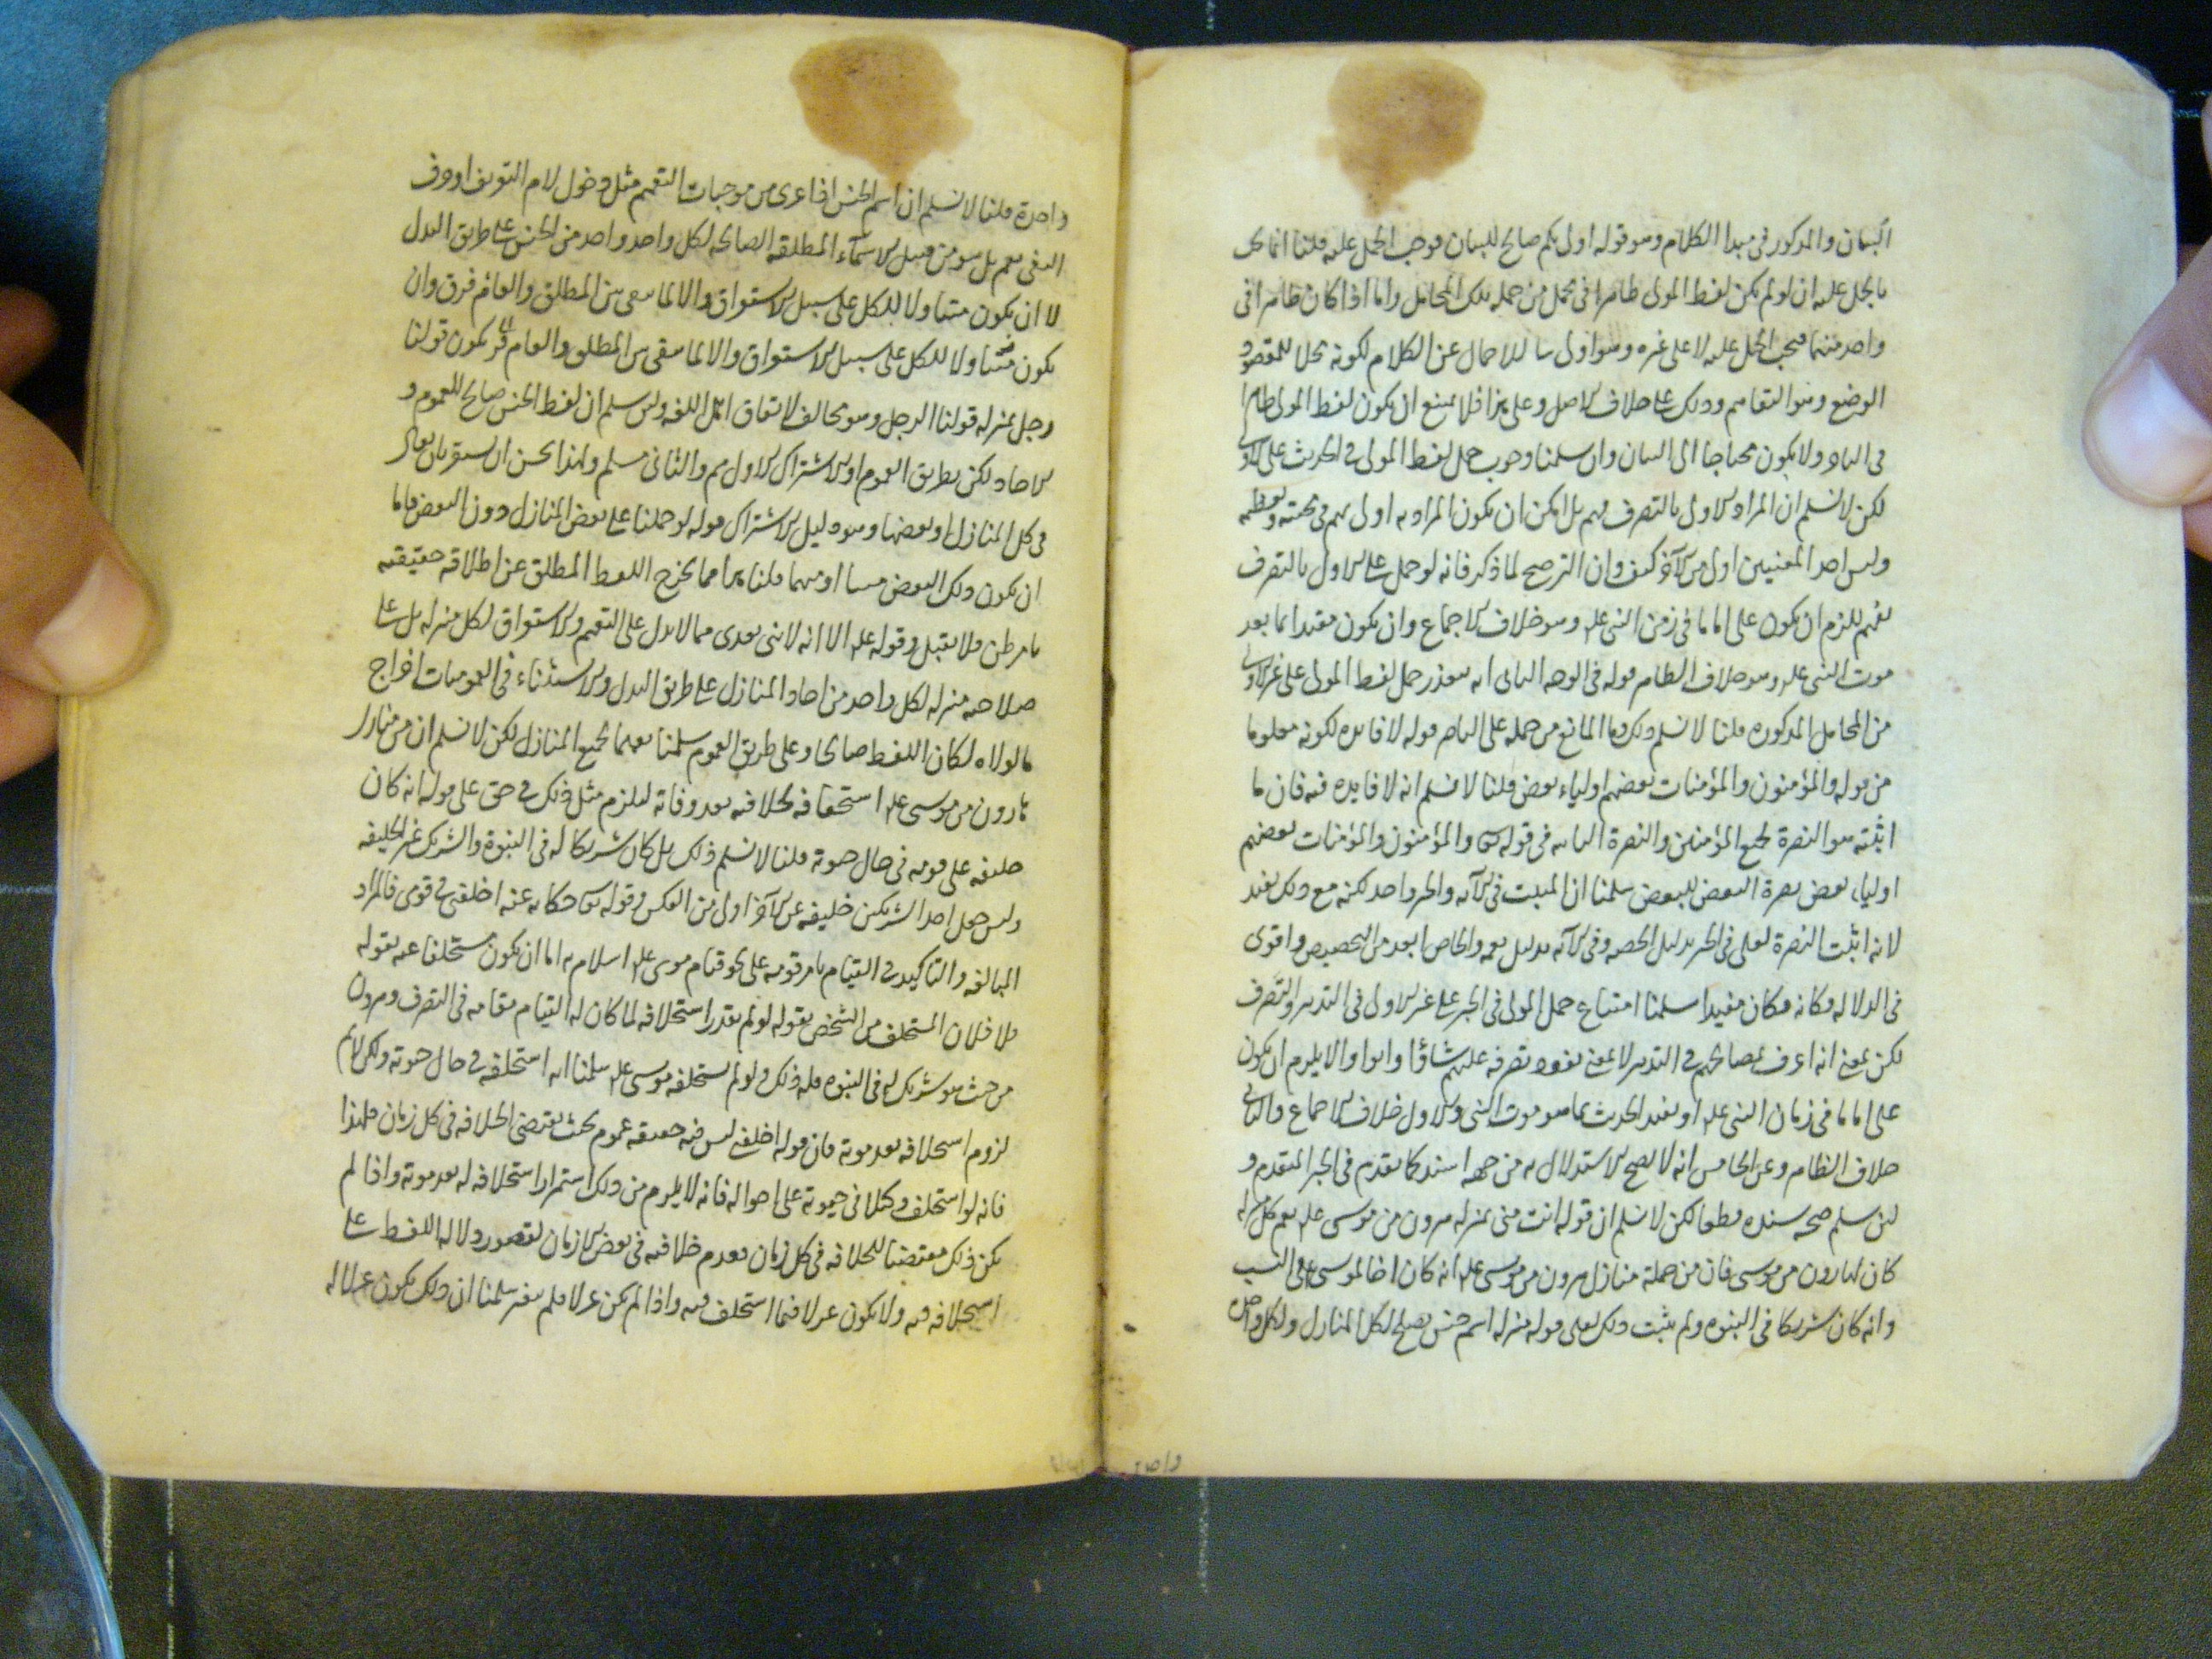 البيان والمذكور في مبدا الكلام وهو قوله اولى بكم صالح للبيان فوجب الحمل عليه قلنا انما يجب
ما يحمل عليه ان لو لم يكن لفظ المولى ظاهرا في محمل من جمله تلك المحامل واما اذا كان ظاهرا في
واحد منها فيجب الحمل عليه لا على غيره وهو اولى للاجمال عن الكلام لكونه مخلا للمقصود
الوضع وهو التفاهم وذلك على خلاف الاصل وعلى هذا فلا يمتنع ان يكون لفظ المولى ظاهرا
في الناصر ولا يكون محتاجا الى البيان وان سلمنا وجوب حمل لفظ المولى في الحديث على الاولى
لكن لا نسلم ان المراد الاولى بالتصرف فيهم بل امكن ان يكون المراد به اولى بهم في محبته وتعظيمه
وليس احد المعنيين اولى من الآخر كيف وان الترجيح لما ذكر فانه لو حمل على الاولى بالتصرف
فيهم للزم ان يكون على اماما في زمن النبى علم وهو خلاف الاجماع وان يكون مقيدا بما بعد
موت النبى علم وهو خلاف الظاهر قوله في الوجه الثانى انه يتعذر حمل لفظ المولى على غير الاولى
من المحامل المذكوره قلنا لا نسلم ذلك وما المانع من حمله على الناصر قوله لا فايده لكونه معلوما
من قوله والمؤمنون والمؤمنات بعضهم اولياء بعض قلنا لا نسلم انه لا فايده فيه فان ما
اثبته هو النصرة لجميع المؤمنين والنصرة الثابته في قوله تعالى والمؤمنون والمؤمنات بعضهم
اولياء بعض نصرة البعض للبعض سلمنا ان المثبت في الآيه والخبر واحد لكنه مع ذلك يفيد
لانه اثبت النصرة لعلى في الخبر بدليل الخصه وفي الآيه بدليل يعمه والخاص ابعد من التخصيص واقوى
في الدلاله فكانه فكان مفيدا سلمنا امتناع حمل المولى في الخبر على غير الاولى في التدبير والتصرف
لكن بمعنى انه اعرف بمصالحهم في التدبير لا بمعنى نفوذ تصرفه عليهم شاؤا وابوا والا يلزم ان يكون
على اماما في زمان النبى علم او يفيد الحديث بما هو موت النبى والاول خلاف الاجماع والثانى
خلاف الظاهر وعن الخامس انه لا يصح الاستدلال به من جهه السند كما تقدم في الخبر المتقدم و
لئن سلم صحه سنده قطعا لكن لا نسلم ان قوله انت منى بمنزله هرون من موسى علم يعم كل منزله
كان لهارون من موسى فان من جملة منازل هرون من موسى علم انه كان اخا لموسى علم في النسب
وانه كان شريكا في النبوه ولم يثبت ذلك لعلى قوله منزله اسم جنس يصلح لكل المنازل ولكل واحد
واحدة
واحدة قلنا لا نسلم ان اسم الجنس اذا عرى من موجبات التعميم مثل دخول لام التعريف او حرف
النفى يعم بل هو من قبيل الاسماء المطلقه الصالحه لكل واحد واحد من الجنس على طريق البدل
لا ان يكون متناولا للكل على سبيل الاستغراق والا لما بقى بين المطلق والعام فرق وان
يكون متناولا للكل على سبيل الاستغراق والا لما بقى بين المطلق والعام فرق يكون قولنا
رجل بمنزله قولنا الرجل وهو مخالف لاتفاق اهل اللغه ولئن سلم ان لفظ الجنس صالح للعموم و
الاحاد لكن بطريق العموم او الاشتراك الاول مم والثانى مسلم ولهذا يحسن ان يستفهم يقال
في كل المنازل او بعضها وهو دليل الاشتراك قوله لو حملنا على بعض المنازل دون البعض فاما
ان يكون ذلك البعض معينا او مبهما قلنا هذا مما يخرج اللفظ المطلق عن اطلاقه حقيقته
ما هو ظن فلا يقبل وقوله علم الا انه لا نبى بعدى مما لا يدل على التعميم والاستغراق لكل منزله بل على
صلاحيه منزله لكل واحد من احاد المنازل على طريق البدل والاستثناء في العموميات اخراج
ما لولاه لكان اللفظ صالحا وعلى طريق العموم سلمنا تعميها لجميع المنازل لكن لا نسلم ان من منازل
هارون من موسى علم استحقاقه لخلافته بعد وفاته ليلزم مثل ذلك في حق على قوله انه كان
خليفه على قومه في حال حيوته قلنا لا نسلم ذلك بل كان شريكا له في النبوة والشريك غير الخليفه
وليس جعل احد الشريكين خليفه عن الآخر اولى من العكس وقوله تعالى حكايه عنه اخلفنى في قومى فالمراد
المبالغه والتاكيد في القيام بامر قومه على نحو قيام موسى علم السلام به اما ان يكون مستخلفا عنه بقوله
فلا فان المستخلف من الشخص بقوله لو لم يقدر استخلافه لما كان له القيام مقامه في التصرف وهرون
من حيث هو شريك له في النبوه فله ذلك ولو لم يستخلفه موسى علم سلمنا انه استخلفه في حال حيوته ولكن لا نم
لزوم استخلافه بعد موته فان قوله اخلفنى ليس فيه صيغه عموم بحيث يقتضى الخلافه في كل زمان فلهذا
فانه لو استخلف وكيلا في حيوته على امواله فانه لا يلزم من ذلك استمرار استخلافه له بعد موته واذا لم
يكن ذلك مقتضيا للخلافه في كل زمان فعدم خلافته في بعض الازمان لقصور دلاله اللفظ على
استخلافه فيه ولا يكون عزلا فيما استخلف فيه واذا لم يكن عزلا فلم ينفر سلمنا ان ذلك يكون عزلا له